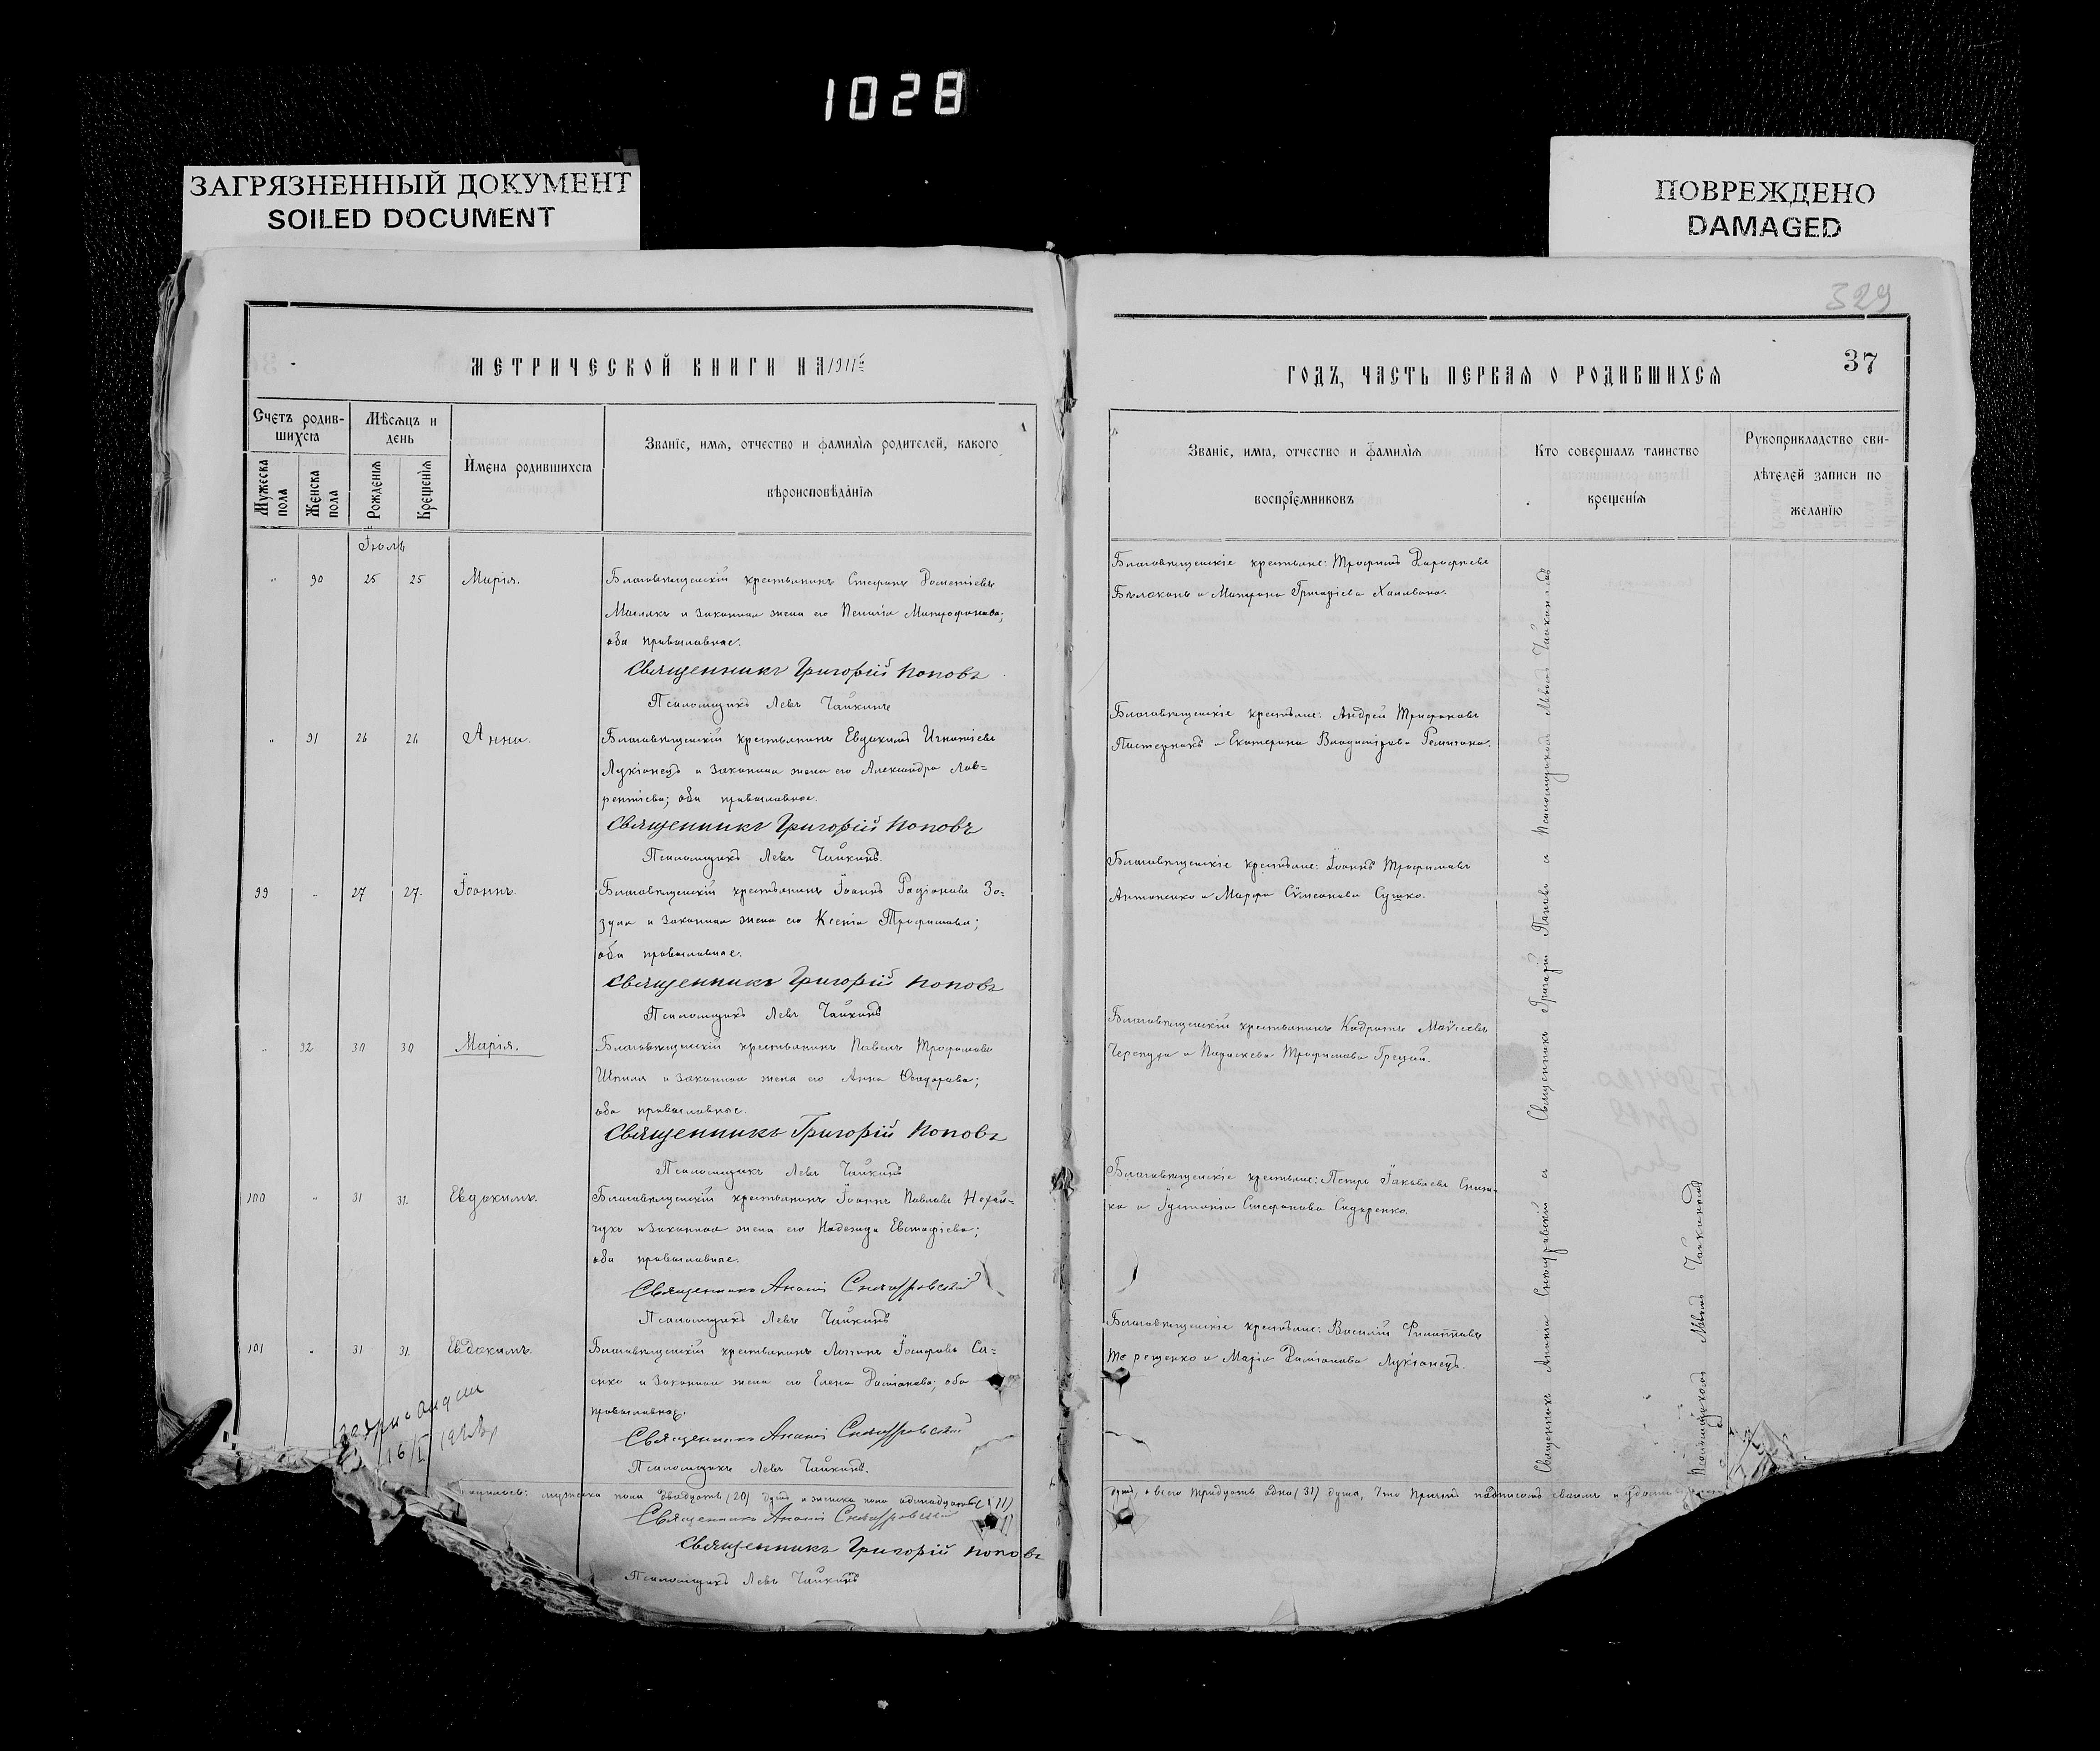 1028
ЗАГРЯЗНЕННЫЙ ДОКУМЕНТ
SOILED DOCUMENT
ПОВРЕЖДЕНО
DAMAGED
329
МЕТРИЧЕСКОЙ КНИГИ НА 1911 г.
Счетъ родив-
шихсѧ
Мѣсѧцъ и
день
Имена родившихсѧ
Званіе, имѧ, отчество и фамиліѧ родителей, какого
вѣроисповѣданіѧ
Мужеска пола
Женска пола
Рожденіѧ
Крещеніѧ
Іюль
" 90 25 25 Марія. Благовѣщенскій крестьянинъ Стефанъ Дометіевъ
и законная жена его Пелагія Митрофанова;
оба православные.
Священникъ Григорій Поповъ
Псаломщикъ Левъ Чайкинъ
" 91 26 26 Анна. Благовѣщенскій крестьянинъ Евдокимъ Игнатіевъ
Лукіанецъ и законная жена его Александра Лав=
рентіева; оба православные.
Священникъ Григорій Поповъ
Псаломщикъ Левъ Чайкинъ.
99 " 27 27. Іоаннъ. Благовѣщенскій крестьянинъ Іоаннъ Родіоновъ Зо=
зуля и законная жена его Ксенія Трофимова;
оба православные.
Священникъ Григорій Поповъ
Псаломщикъ Левъ Чайкинъ
" 92 30 30 Марія. Благовѣщенскій крестьянинъ Павелъ Трофимовъ
Шпиля и законная жена его Анна Ѳеодорова;
оба православные.
Священникъ Григорій Поповъ
Псаломщикъ Левъ Чайкинъ
100 " 31 31. Евдокимъ. Благовѣщенскій крестьянинъ Іоаннъ Павловъ Нехай=
чука и законная жена его Надежда Евстафіева;
оба православные.
Священникъ Ананій
Псаломщикъ Левъ Чайкинъ
101 " 31 31. Евдокимъ. Благовѣщенскій крестьянинъ Логинъ Іосифовъ Са=
енко и законная жена его Елена Даміанова; оба
православные.
Священникъ Ананій
Псаломщикъ Левъ Чайкинъ.
16/I
мужеска пола двадцать (20) душъ а женска пола одинадцать (11)
Священникъ Ананій
Священникъ Григорій Поповъ
Псаломщикъ Левъ Чайкинъ
ГОДЪ, ЧАСТЬ ПЕРВАѦ О РОДИВШИХСѦ
37
Званіе, имѧ, отчество и фамиліѧ
воспріемниковъ
Кто совершалъ таинство
крещеніѧ
Рукоприкладство сви-
дѣтелей записи по
желанію
Благовѣщенскіе крестьяне: Трофимъ Дорофеевъ
Бѣлоконь и Матрона Григоріева
Благовѣщенскіе крестьяне: Андрей Трифоновъ
Пастернакъ и Екатерина Владимірова
Благовѣщенскіе крестьяне: Іоаннъ Трофимовъ
Антоненко и Марфа Сѵмеонова Сушко.
Благовѣщенскій крестьянинъ Кодратъ Моѵсеевъ
Черепуха и Параскева Трофимова Грецай.
Благовѣщенскіе крестьяне: Петръ Іаковлевъ
ка и Іустинія Стефанова Сидоренко.
Благовѣщенскіе крестьяне: Василій Филипповъ
Терещенко и Марія Даміанова Лукіанецъ.
Священникъ Григорій Поповъ и псаломщикомъ Львомъ Чайкинымъ
Священникъ Ананій
Псаломщикомъ Львомъ Чайкинымъ
душъ, а всего тридцать одна (31) душа, что причтъ подписомъ своимъ и